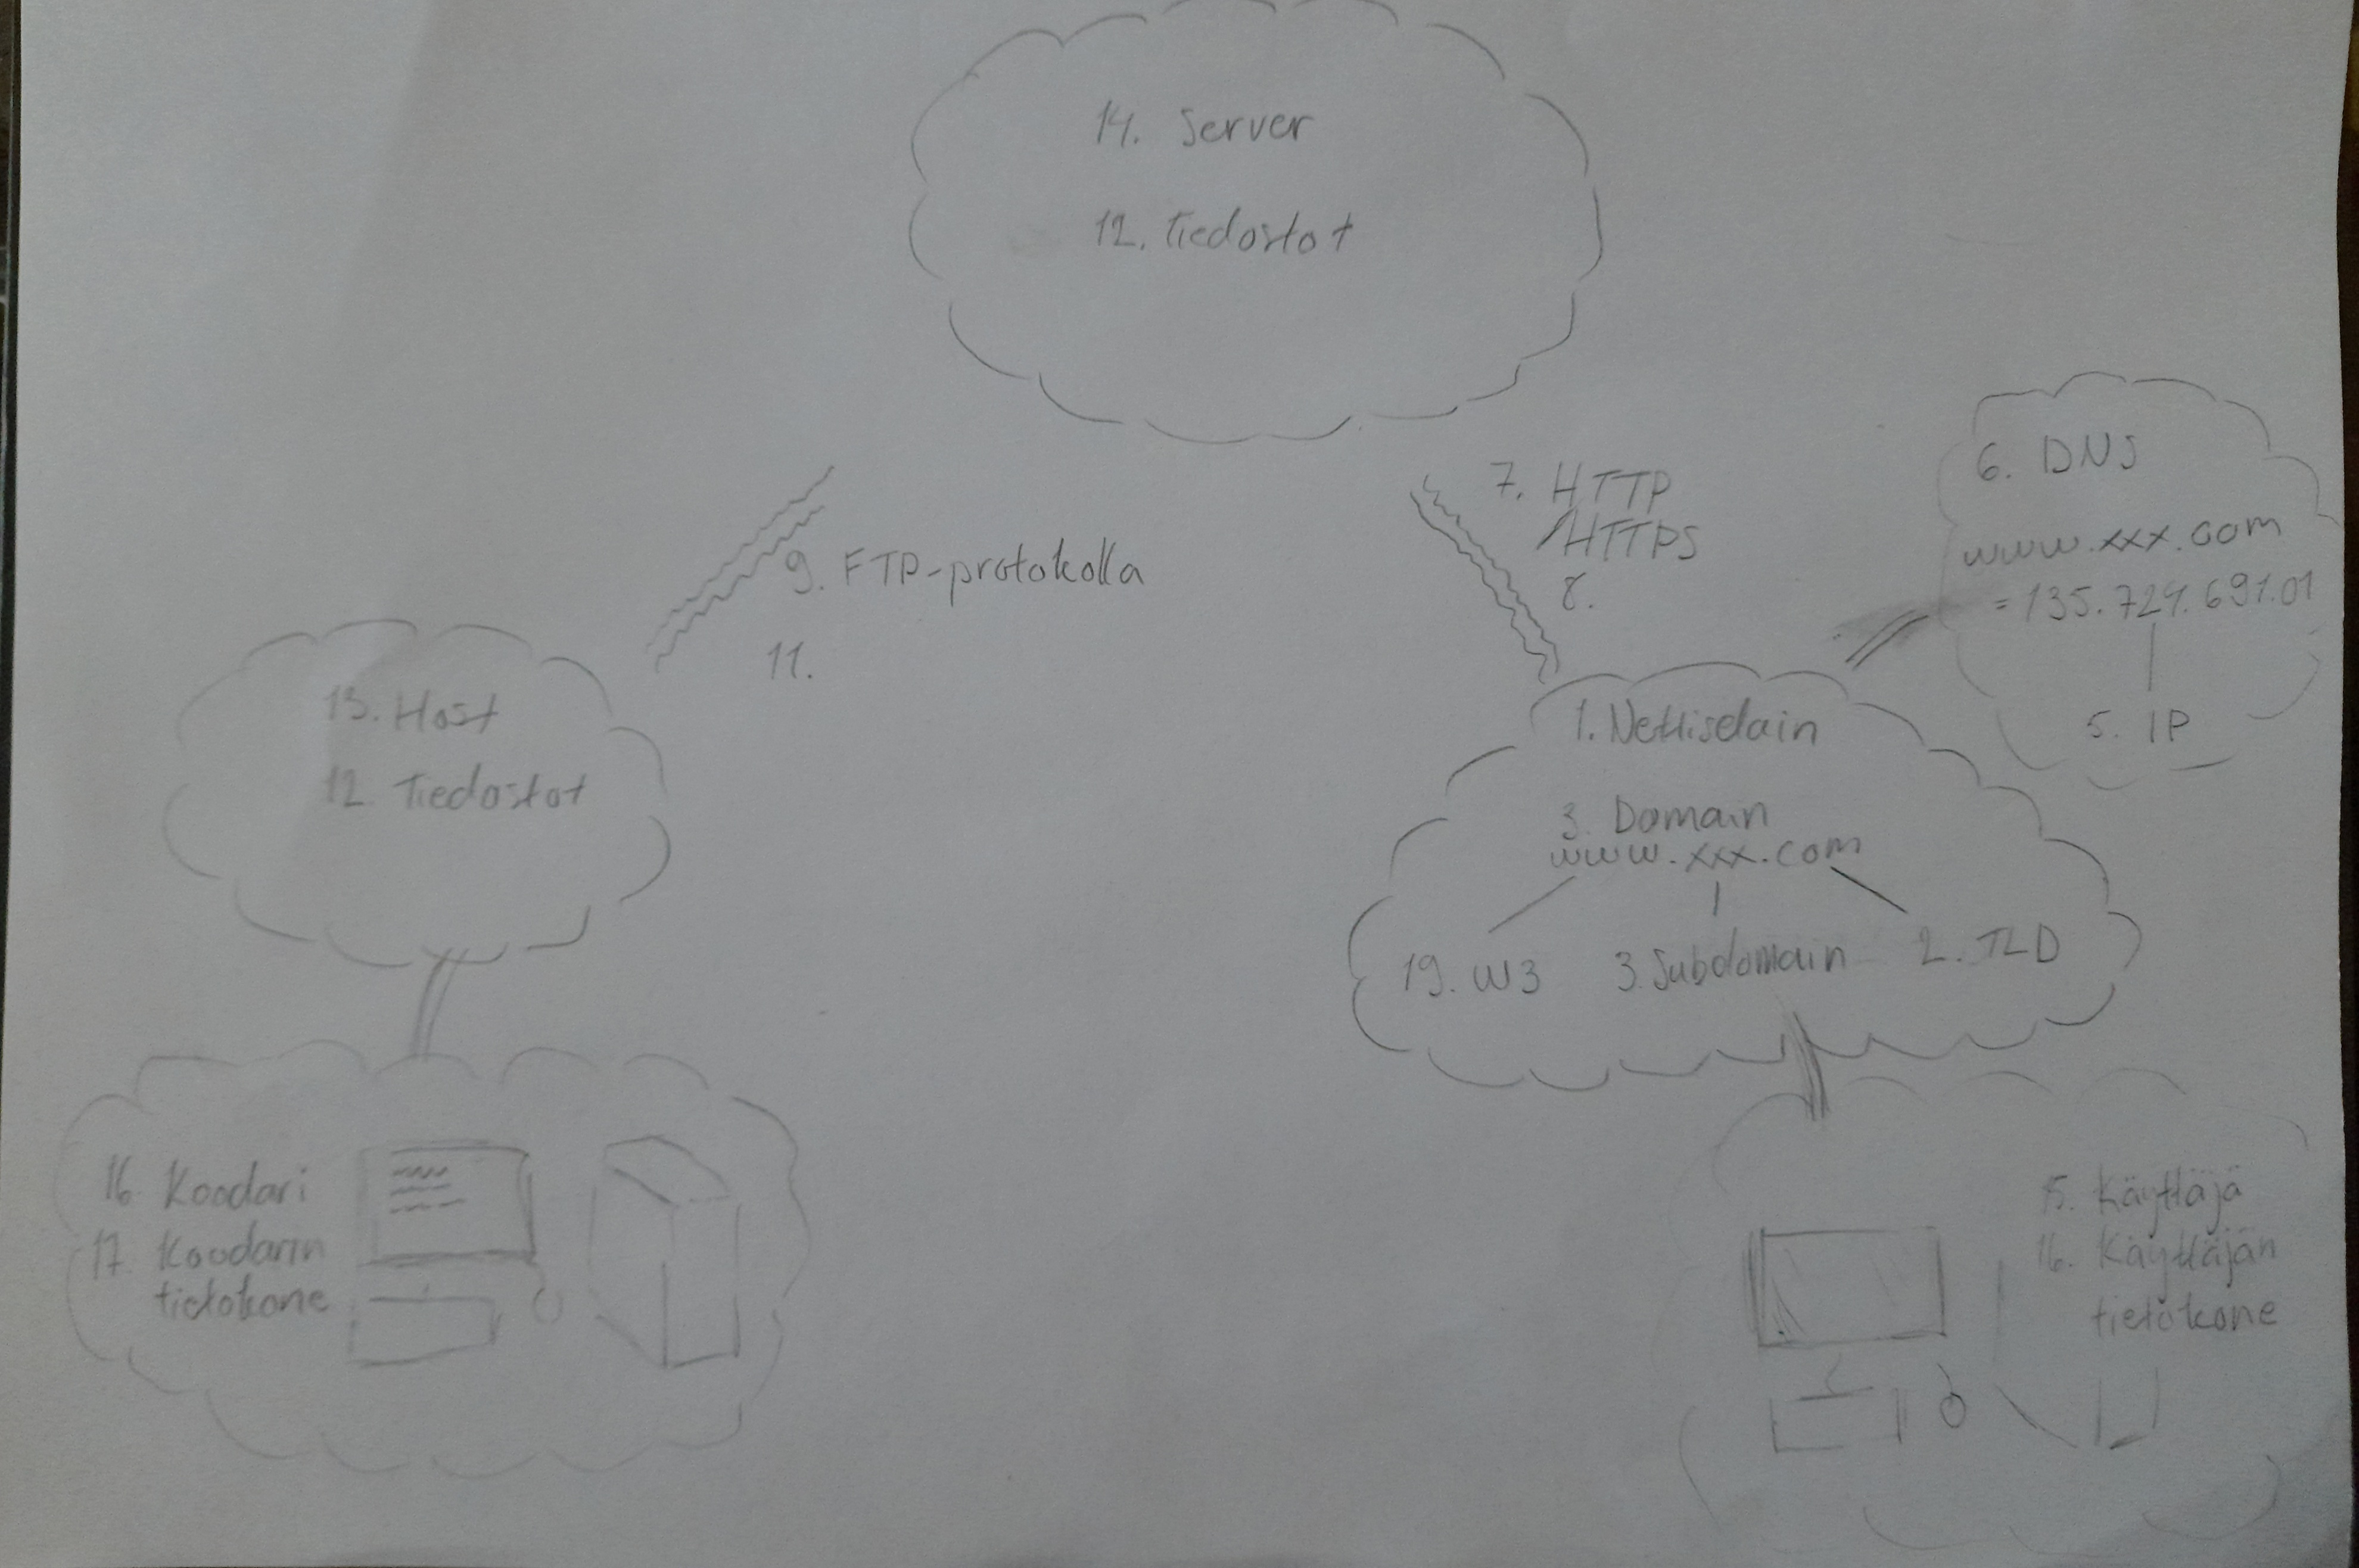 14. Server
12. Tiedostot
7. HTTP
/HTTPS
8.
6. DNS
www.xxx.com
= 135.724.691.01
5. IP
9. FTP-protokolla
11.
13. Host
12. Tiedostot
1. Nettiselain
3. Domain
www.xxx.com
19. W3 3. Subdomain 2. TLD
16. Koodari
17. Koodarin
tietokone
15. Käyttäjä
16. Käyttäjän
tietokone